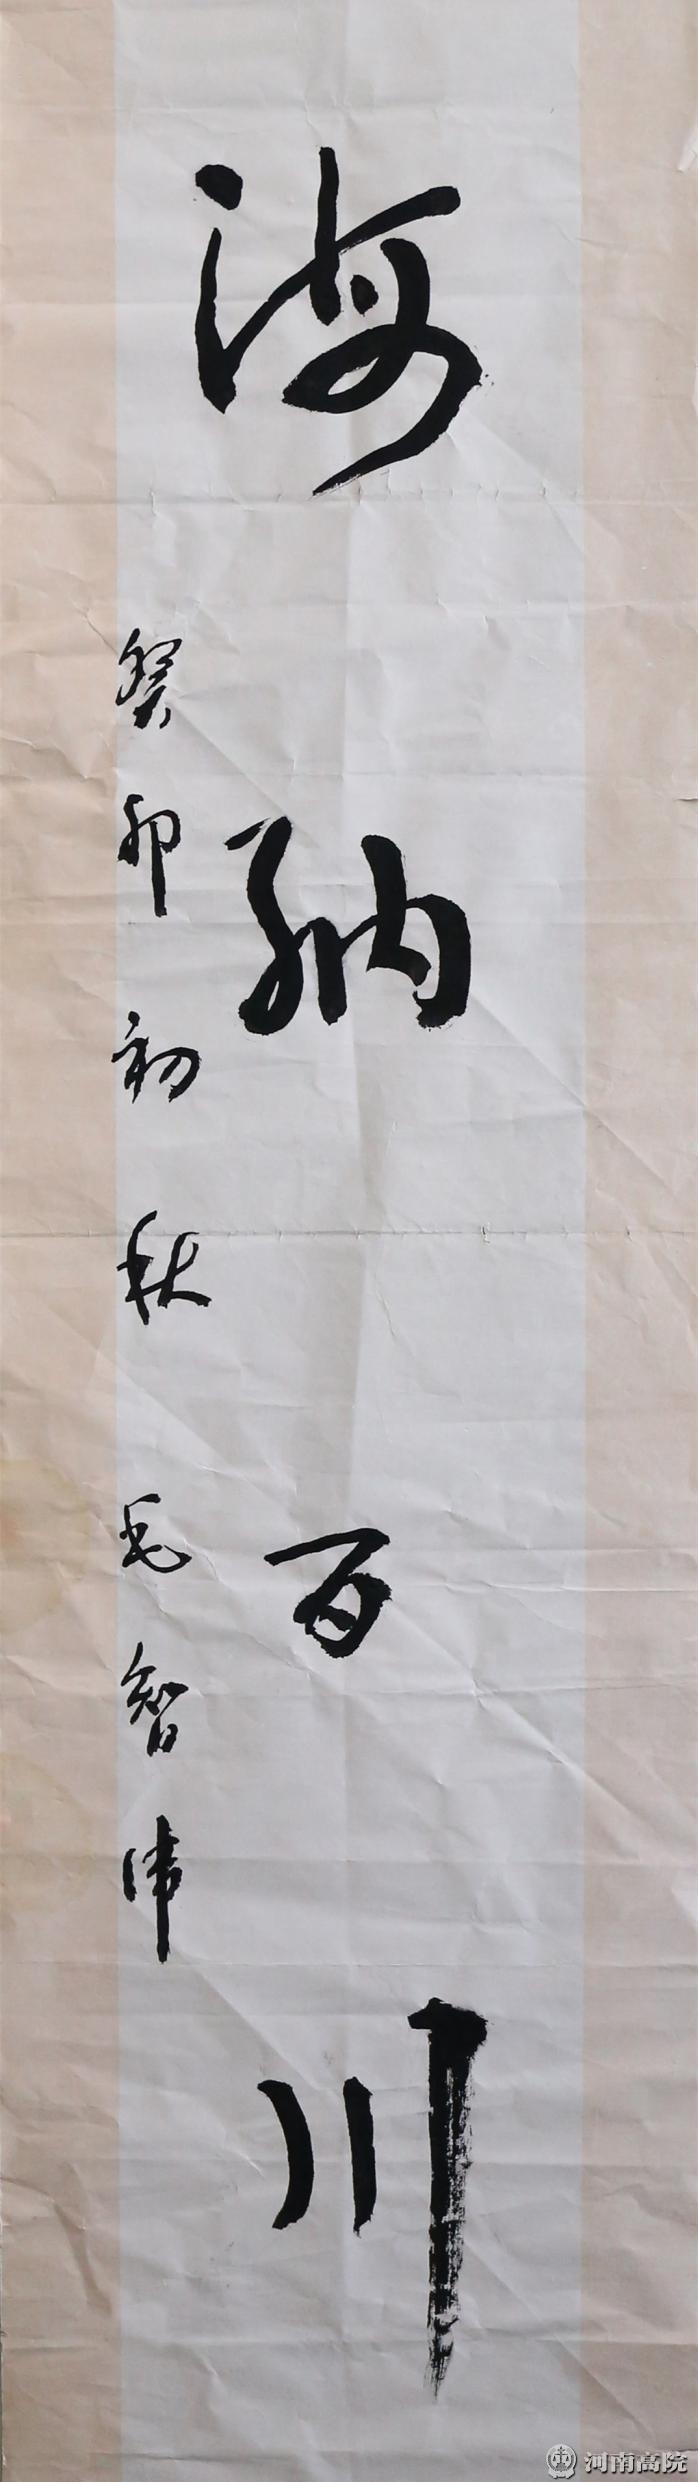 海纳百川
癸卯初秋 毛智伟
河南高院